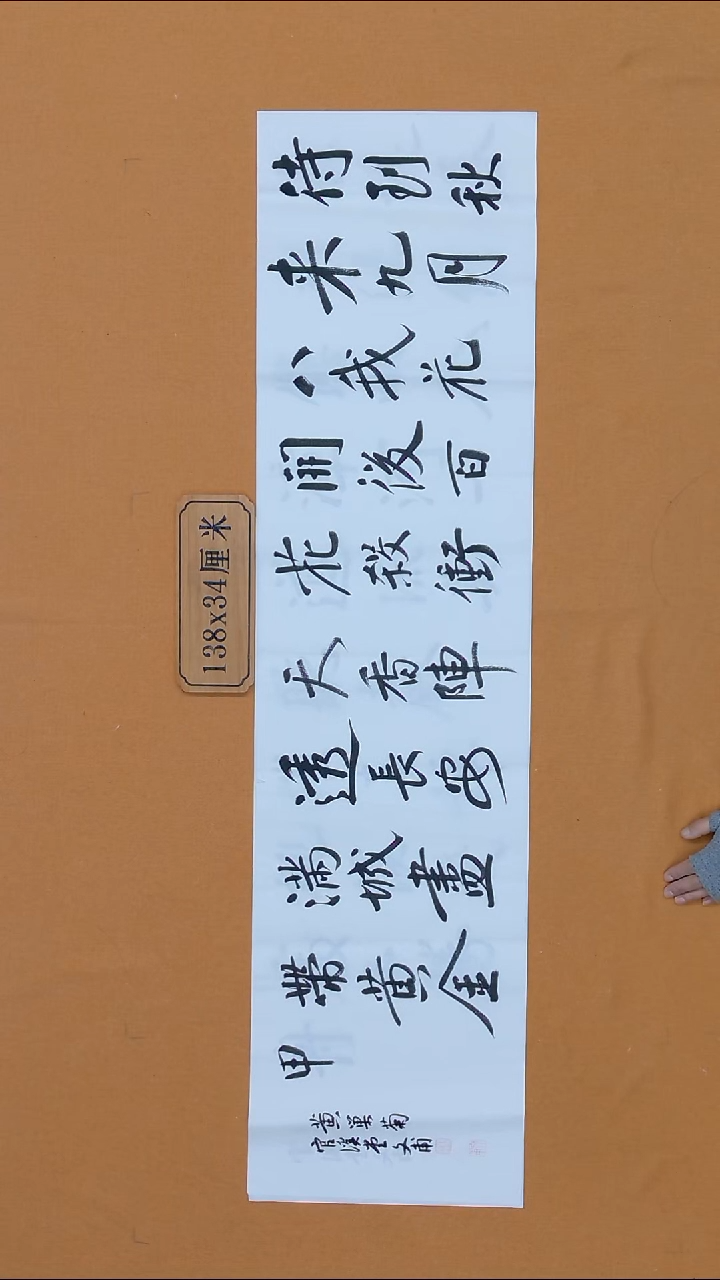 待到秋
来九月
八我花
開後百
花殺衝
天香陣
透長安
满城盡
帶黄金
甲
黄巢菊
溪文甫
138x34厘米